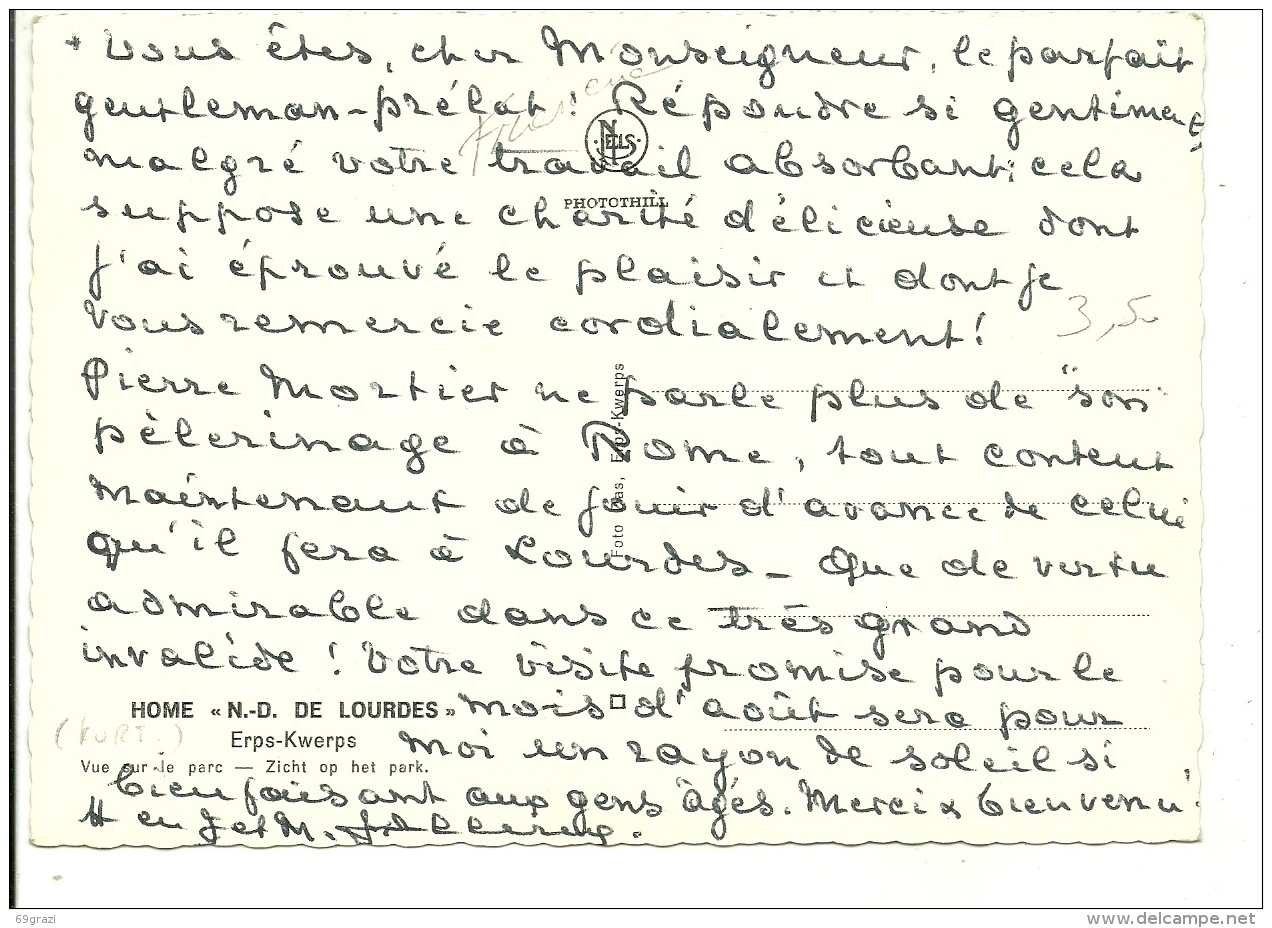 + Vous êtes, cher Monseigneur, le parfait
gentleman-prélat ! Répondre si gentiment
malgré votre travail absorbant: cela
suppose une charité délicieuse dont
j'ai éprouvé le plaisir et dont je
vous remercie cordialement !
Pierre Mortier ne parle plus de "son
pèlerinage à Rome, tout content
maintenant de jouir d'avance de celui
qu'il fera à Lourdes – Que de vertu
admirable dans ce très grand
invalide ! Votre visite promise pour le
mois d'août sera pour
moi un rayon de soleil si
bienfaisant aux gens âgés. Merci & bienvenu
en J et M.
NELS
PHOTOTHILL
3,50
Erps-Kwerps
HOME « N.-D. DE LOURDES »
Erps-Kwerps
Vue sur le parc — Zicht op het park.
(KORT.)
69grazi
www.delcampe.net